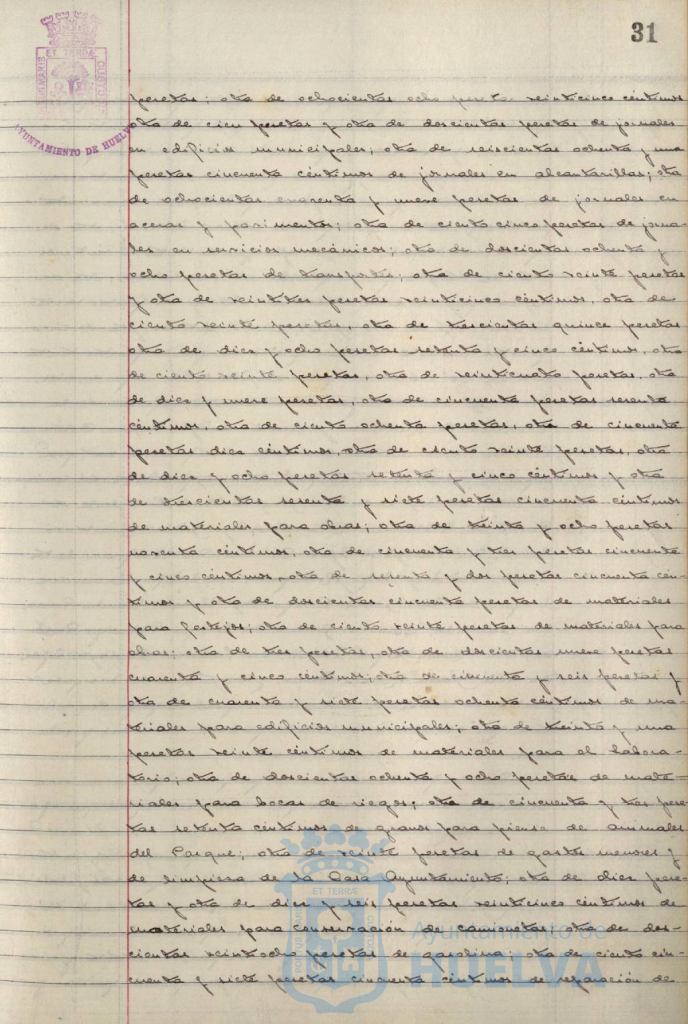 31
PORTUS MARIS ET TERRÆ CUSTODIA
AYUNTAMIENTO DE HUELVA
pesetas; otra de ochocientas ocho pesetas veinticinco céntimos
otra de cien pesetas y otra de doscientas pesetas de jornales
en edificios municipales; otra de seiscientas ochenta y una
pesetas cincuenta céntimos de jornales en alcantarillas; otra
de ochocientas cuarenta y nueve pesetas de jornales en
aceras y pavimentos; otra de ciento cinco pesetas de jorna-
les en servicios mecánicos; otra de doscientas ochenta y
ocho pesetas de transportes; otra de ciento veinte pesetas
y otra de veintitres pesetas veinticinco céntimos, otra de
ciento veinte pesetas, otra de trescientas quince pesetas
otra de diez y ocho pesetas setenta y cinco céntimos, otra
de ciento veinte pesetas, otra de veinticuatro pesetas, otra
de diez y nueve pesetas, otra de cincuenta pesetas sesenta
céntimos, otra de ciento ochenta pesetas, otra de cincuenta
pesetas diez céntimos, otra de ciento veinte pesetas, otra
de diez y ocho pesetas setenta y cinco céntimos y otra
de trescientas sesenta y siete pesetas cincuenta céntimos
de materiales para obras; otra de treinta y ocho pesetas
noventa céntimos, otra de cincuenta y tres pesetas cincuenta
y cinco céntimos, otra de sesenta y dos pesetas cincuenta cén-
timos y otra de doscientas cincuenta pesetas de materiales
para festejos; otra de ciento veinte pesetas de materiales para
obras; otra de tres pesetas, otra de doscientas nueve pesetas
cuarenta y cinco céntimos; otra de cincuenta y seis pesetas y
otra de cuarenta y siete pesetas ochenta céntimos de ma-
teriales para edificios municipales; otra de treinta y una
pesetas veinte céntimos de materiales para el labora-
torio; otra de doscientas ochenta y ocho pesetas de mate-
riales para bocas de riegos; otra de cincuenta y tres pese-
tas setenta céntimos de granos para pienso de animales
del Parque; otra de veinte pesetas de gastos menores y
de limpieza de la Casa Ayuntamiento; otra de diez pese-
tas y otra de diez y seis pesetas veinticinco céntimos de
materiales para conservación de camionetas otra de dos-
cientas veintiocho pesetas de gasolina; otra de ciento cin-
cuenta y siete pesetas cincuenta céntimos de reparación de
PORTUS MARIS ET TERRÆ CUSTODIA
Ayuntamiento de
HUELVA